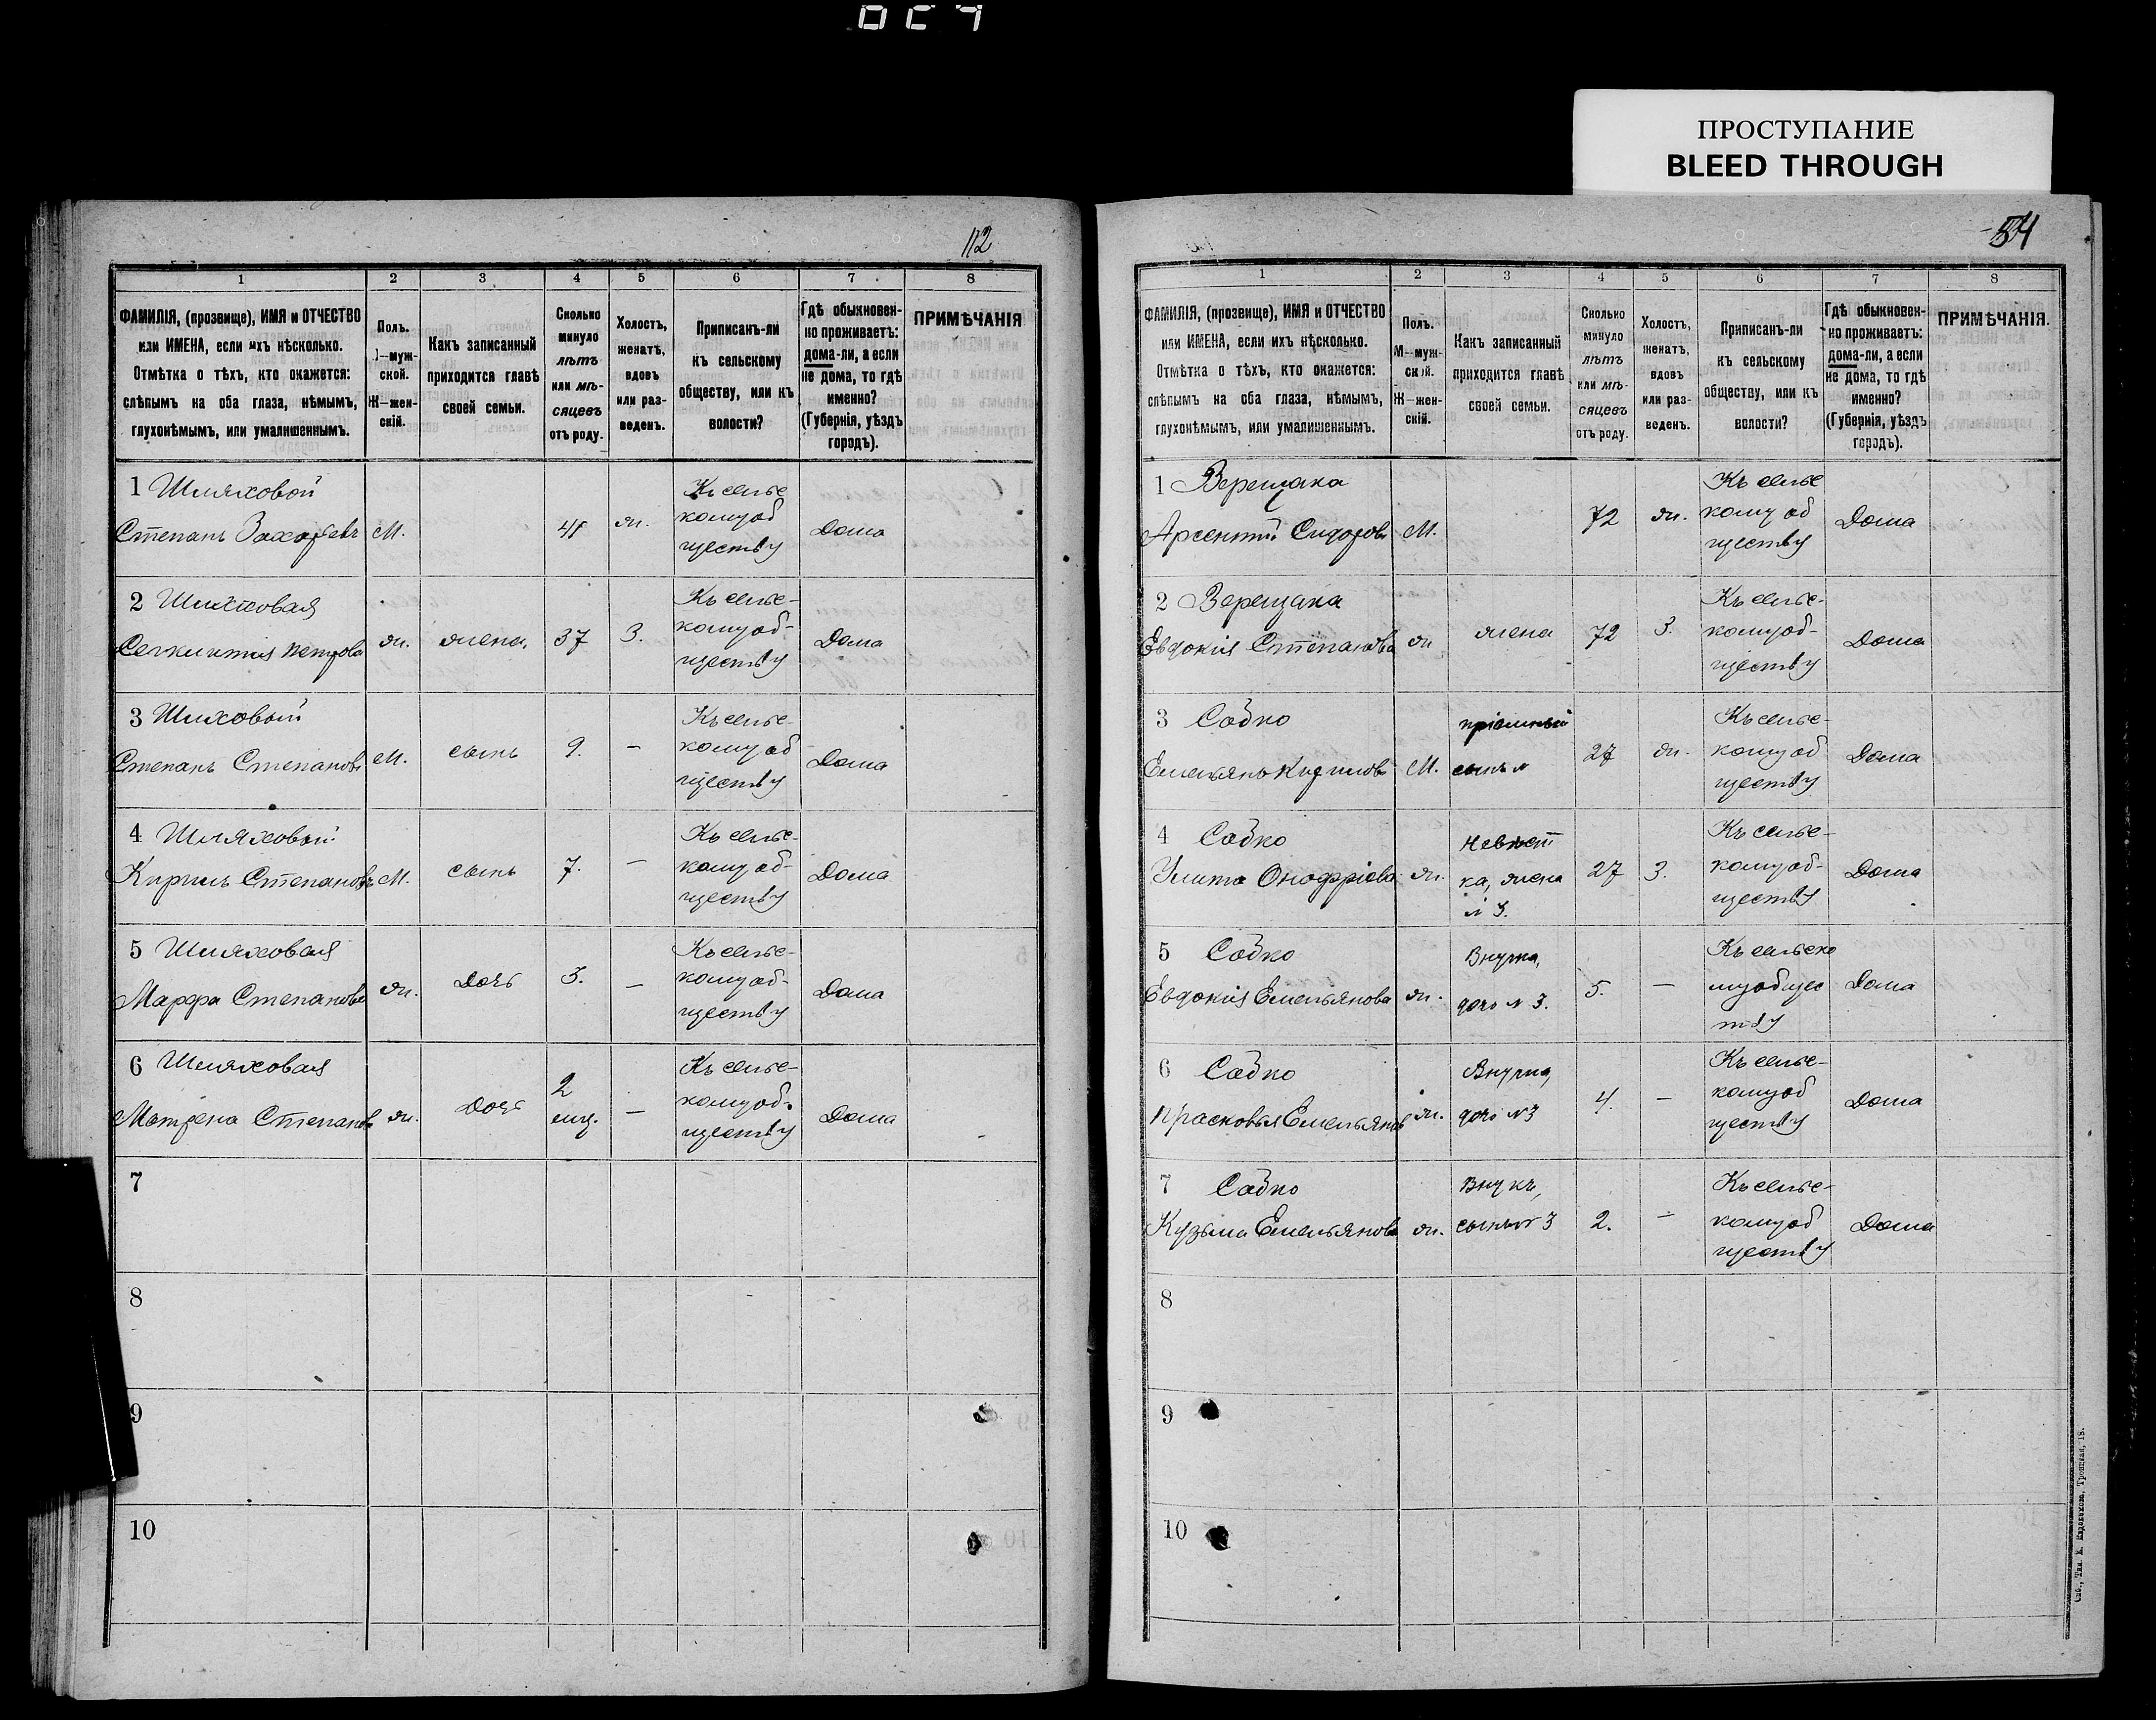 ПРОСТУПАНИЕ
BLEED THROUGH
112
1 2 3 4 5 6 7 8
ФАМИЛІЯ, (прозвище), ИМЯ и ОТЧЕСТВО
или ИМЕНА, если ихъ нѣсколько.
Отмѣтка о тѣхъ, кто окажется:
слѣпымъ на оба глаза, нѣмымъ,
глухонѣмымъ, или умалишеннымъ.
Полъ.
М—муж-
ской.
Ж—жен-
скій.
Какъ записанный
приходится главѣ
своей семьи.
Сколько
минуло
лѣтъ
или мѣ-
сяцевъ
отъ роду.
Холостъ,
женатъ,
вдовъ
или раз-
веденъ.
Приписанъ-ли
къ сельскому
обществу, или къ
волости?
Гдѣ обыкновен-
но проживаетъ:
дома-ли, а если
не дома, то гдѣ
именно?
(Губернія, уѣздъ
городъ).
ПРИМѢЧАНІЯ
1 Шляховой
Степанъ Захарьевъ
М.
ж.
Къ селье
кому об
ществу
Дома
2 Шляховая
Петрова
ж.
жена.
37
З.
Къ селье-
кому об-
ществу
Дома
3 Шляховый
Степанъ Степановъ
М.
сынъ
9.
—
Къ селье-
кому об
ществу
Дома
4 Шляховый
Кирилъ Степановъ
М.
сынъ
7.
—
Къ селье-
кому об-
ществу
Дома
5 Шляховая
Марфа Степанова
ж.
Дочь
3.
—
Къ селье-
кому об-
ществу
Дома
6 Шляховая
Матрена Степанов
ж.
Дочь
2
мц.
—
Къ селье-
кому об-
ществу
Дома
7
8
9
10
54
1 2 3 4 5 6 7 8
ФАМИЛІЯ, (прозвище), ИМЯ и ОТЧЕСТВО
или ИМЕНА, если ихъ нѣсколько.
Отмѣтка о тѣхъ, кто окажется:
слѣпымъ на оба глаза, нѣмымъ,
глухонѣмымъ, или умалишеннымъ.
Полъ.
М—муж-
ской.
Ж—жен-
скій.
Какъ записанный
приходится главѣ
своей семьи.
Сколько
минуло
лѣтъ
или мѣ-
сяцевъ
отъ роду.
Холостъ,
женатъ,
вдовъ
или раз-
веденъ.
Приписанъ-ли
къ сельскому
обществу, или къ
волости?
Гдѣ обыкновен-
но проживаетъ:
дома-ли, а если
не дома, то гдѣ
именно?
(Губернія, уѣздъ
городъ).
ПРИМѢЧАНІЯ.
1 Верещака
Арсентій Сидоровъ
М.
72
ж.
Къ селье
кому об
ществу
Дома
2 Верещака
Евдокія Степанова
ж
жена
72
З.
Къ селье-
кому об-
ществу
Дома
3 Собко
Емельянъ Кириловъ
М.
пріемный
сынъ
27
ж.
Къ селье-
кому об
ществу
Дома
4 Собко
Улита Онофріева
ж.
Невѣст
ка, жена
№ 3.
27
З.
Къ селье-
кому об-
ществу
Дома
5 Собко
Евдокія Емельянова
ж.
Внучка,
дочь № 3.
5.
—
Къ сельско
му общес
тву
Дома
6 Собко
Прасковья Емельянов
ж.
Внучка,
дочь № 3
4.
—
Къ селье-
кому об
ществу
Дома
7 Собко
Кузьма Емельяновъ
ж.
Внукъ,
сынъ № 3
2.
—
Къ селье-
кому об
ществу
Дома
8
9
10
Спб., Тип. Е. Евдокимова, Троицкая, 18.